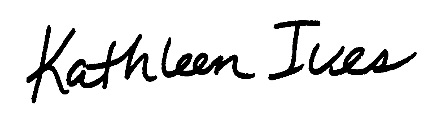 Kathleen Ives